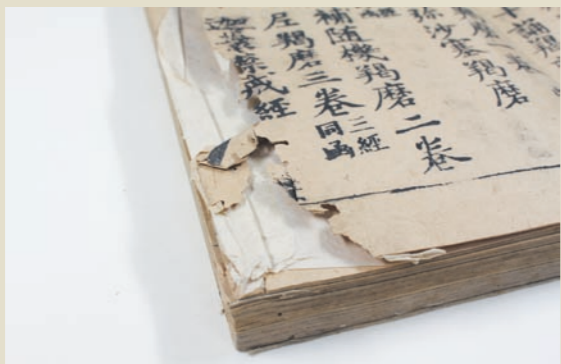 十誦
弥沙塞羯磨
補随機羯磨二卷
尼羯磨三卷三經同函
迦葉禁戒經